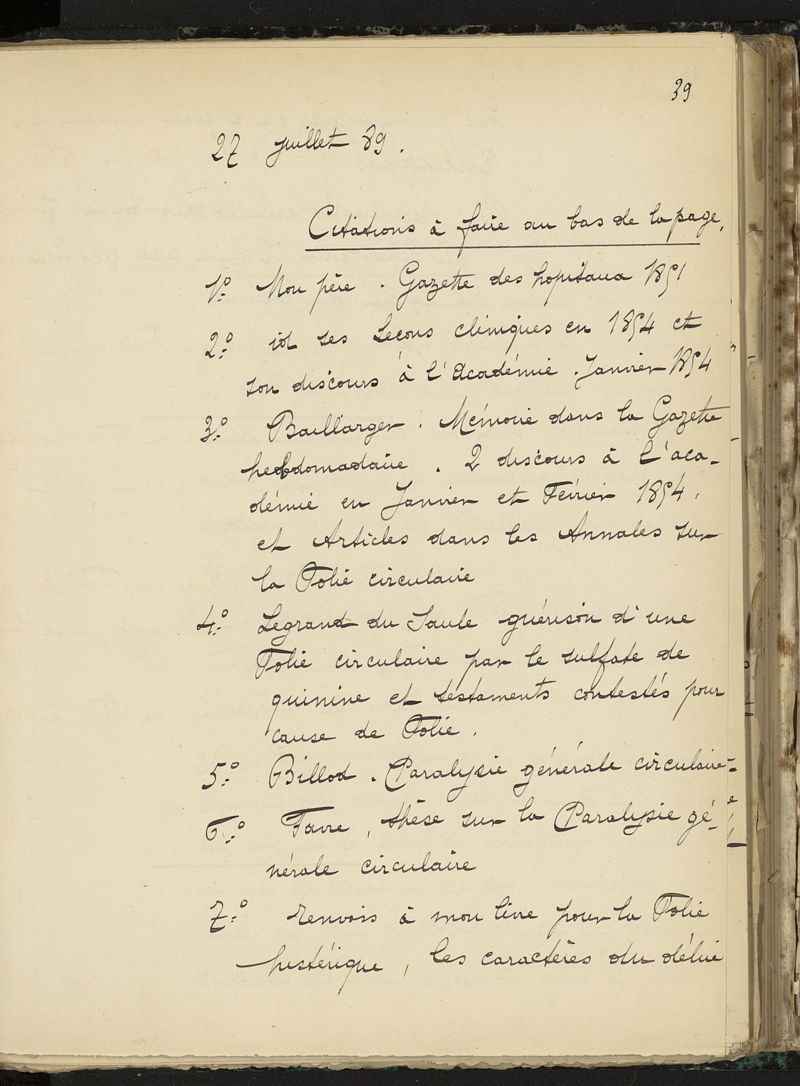 39
27 juillet 89.
Citations à faire au bas de la page.
1.° Mon père. Gazette des hopitaux 1851
2.° id ses Leçons cliniques en 1854 et
son discours à l'Académie. Janvier 1854
3.° Baillarger. Mémoire dans la Gazette
hebdomadaire. 2 discours à l'aca-
démie en Janvier et Février 1854.
et Articles dans les Annales sur
la Folie circulaire
4.° Legrand du Saule guérison d'une
Folie circulaire par le sulfate de
quinine et testaments contestés pour
cause de Folie.
5.° Billod. Paralysie générale circulaire
6.° Favre, thèse sur la Paralysie gé-
nérale circulaire
7.° renvois à mon livre pour la Folie
hystérique, les caractères du délire